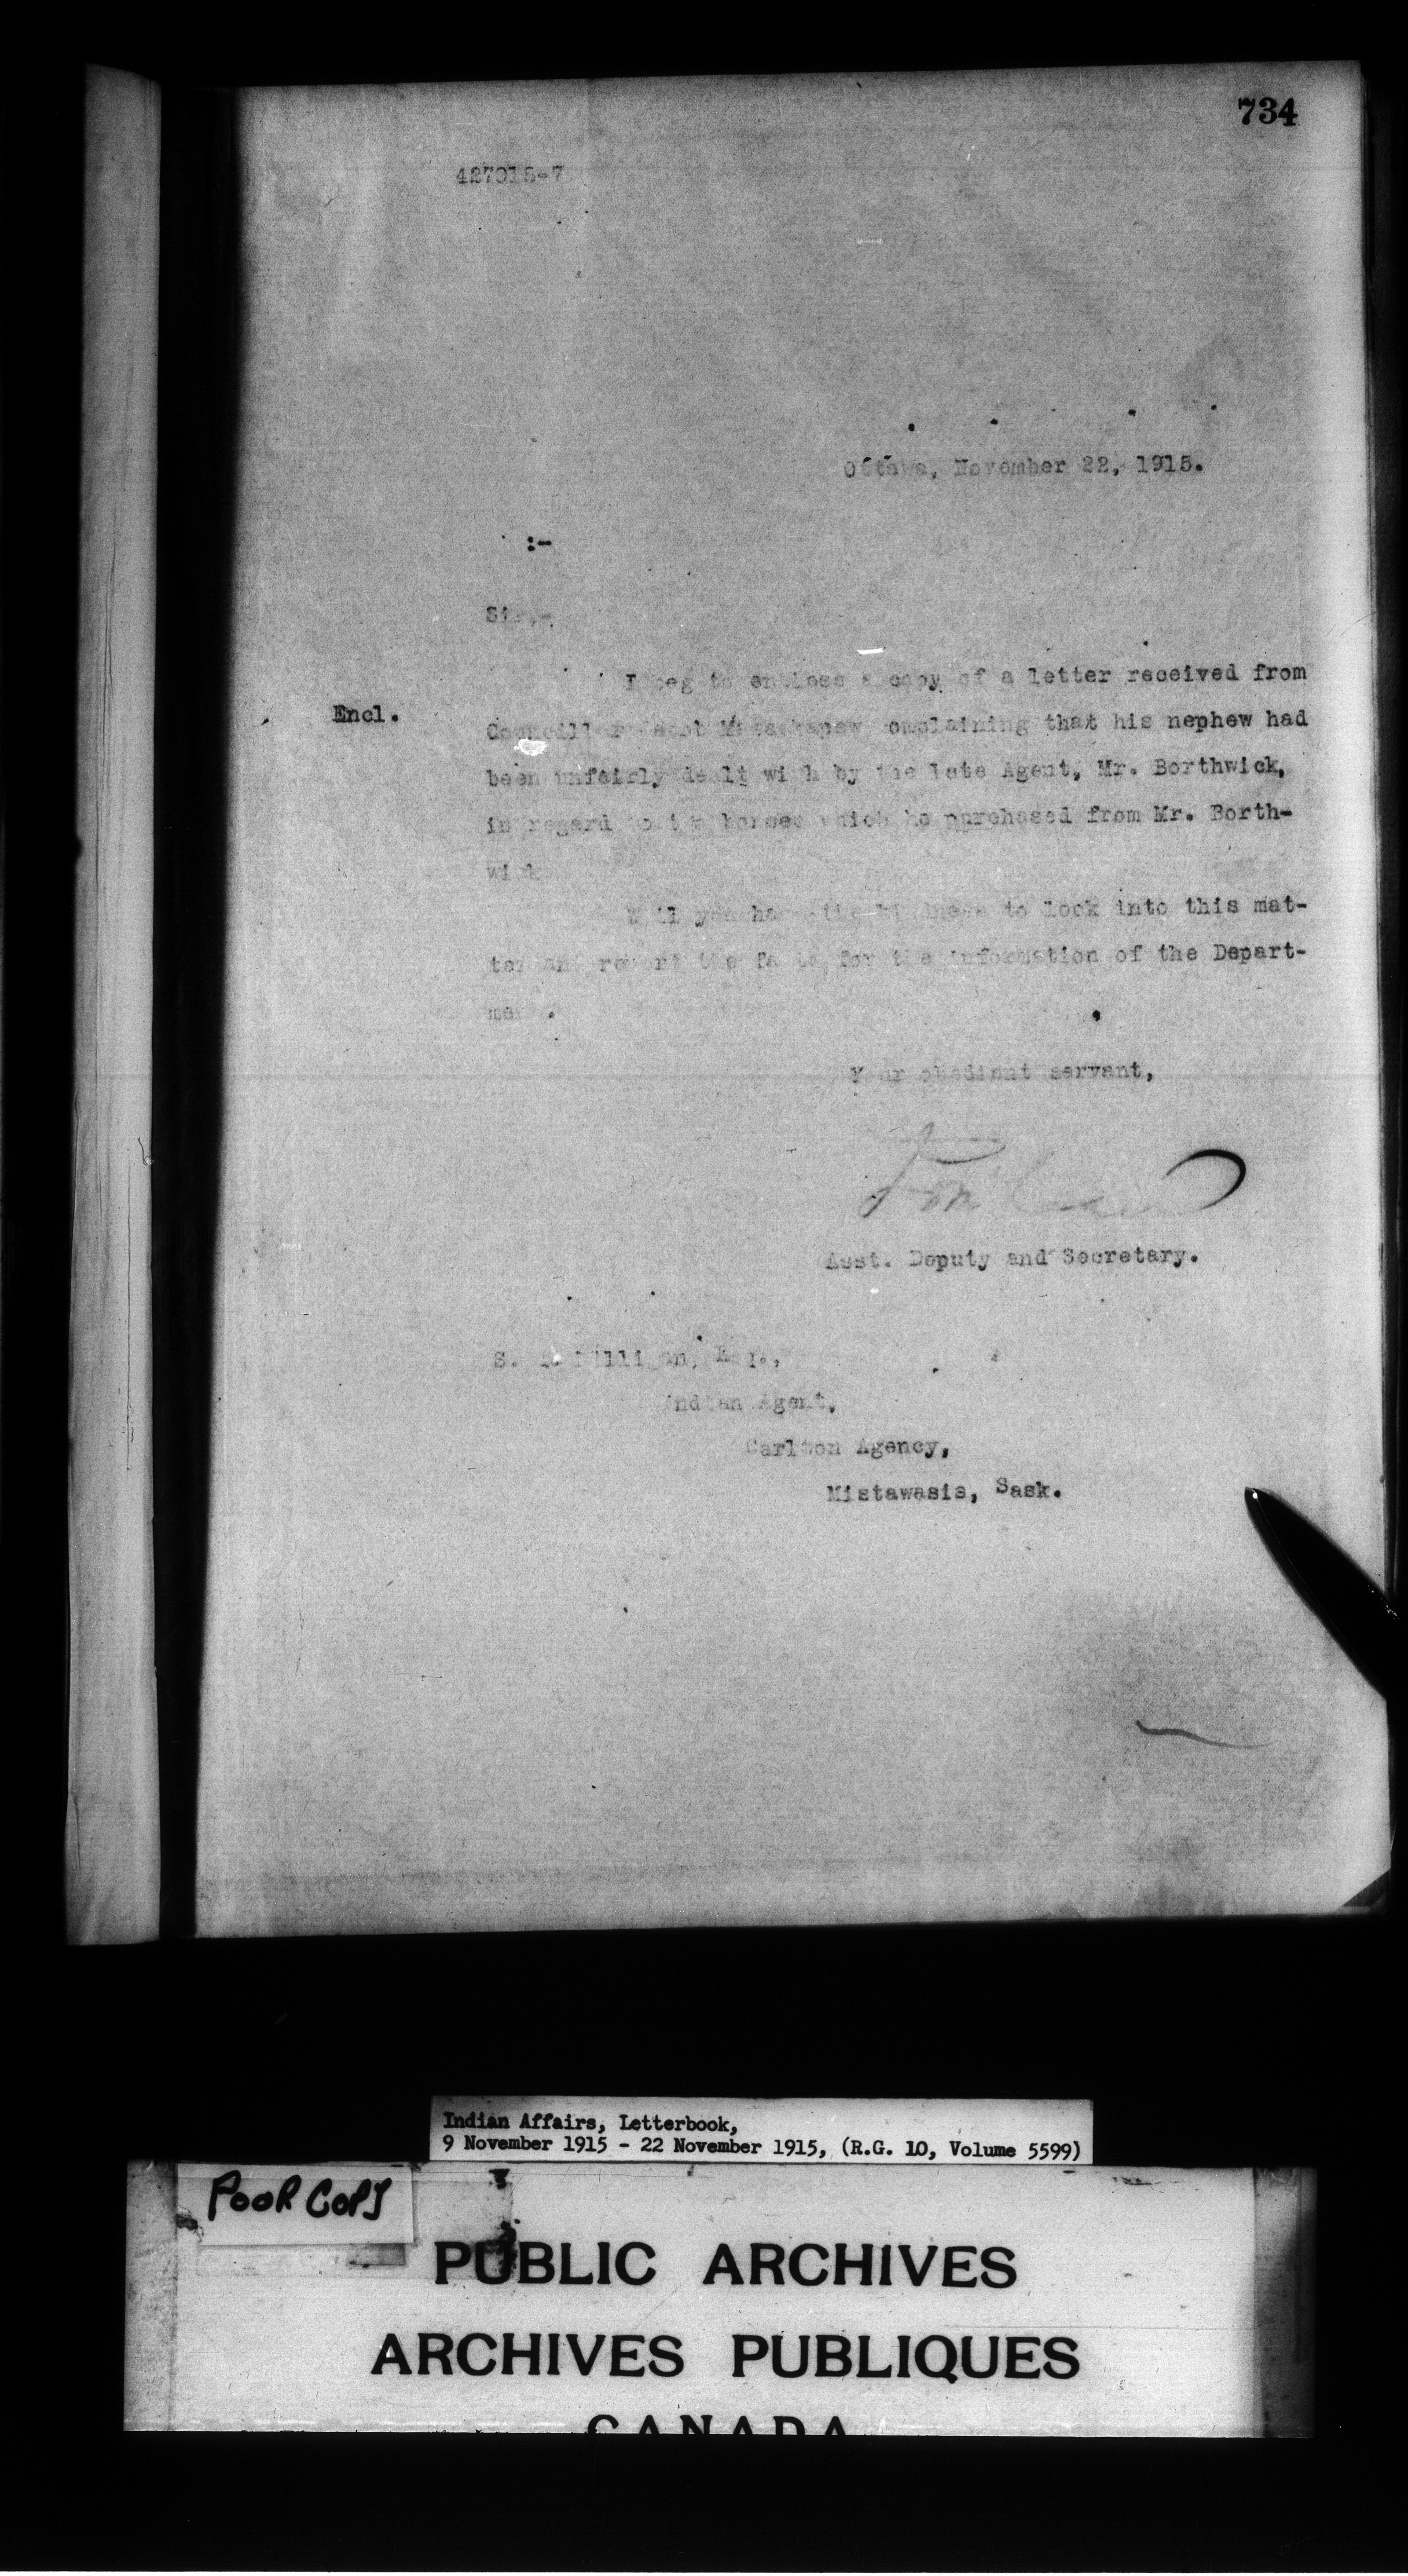 734
427018-7
Ottawa, November 22, 1915.
:-
Sir,-
I beg to enclose a copy of a letter received from
Encl.
Councillor complaining that his nephew had
been unfairly dealt with by the late Agent, Mr. Borthwick,
in regard to horses which he purchased from Mr. Borth-
wick
Will you have the kindness to look into this mat-
ter and report the facts for the information of the Depart-
ment.
Your obedient servant,
Asst. Deputy and Secretary.
S. Milligan, Esq.,
Indian Agent,
Carlton Agency,
Mistawasis, Sask.
Indian Affairs, Letterbook,
9 November 1915 - 22 November 1915, (R.G. 10, Volume 5599)
POOR COPY
PUBLIC ARCHIVES
ARCHIVES PUBLIQUES
CANADA